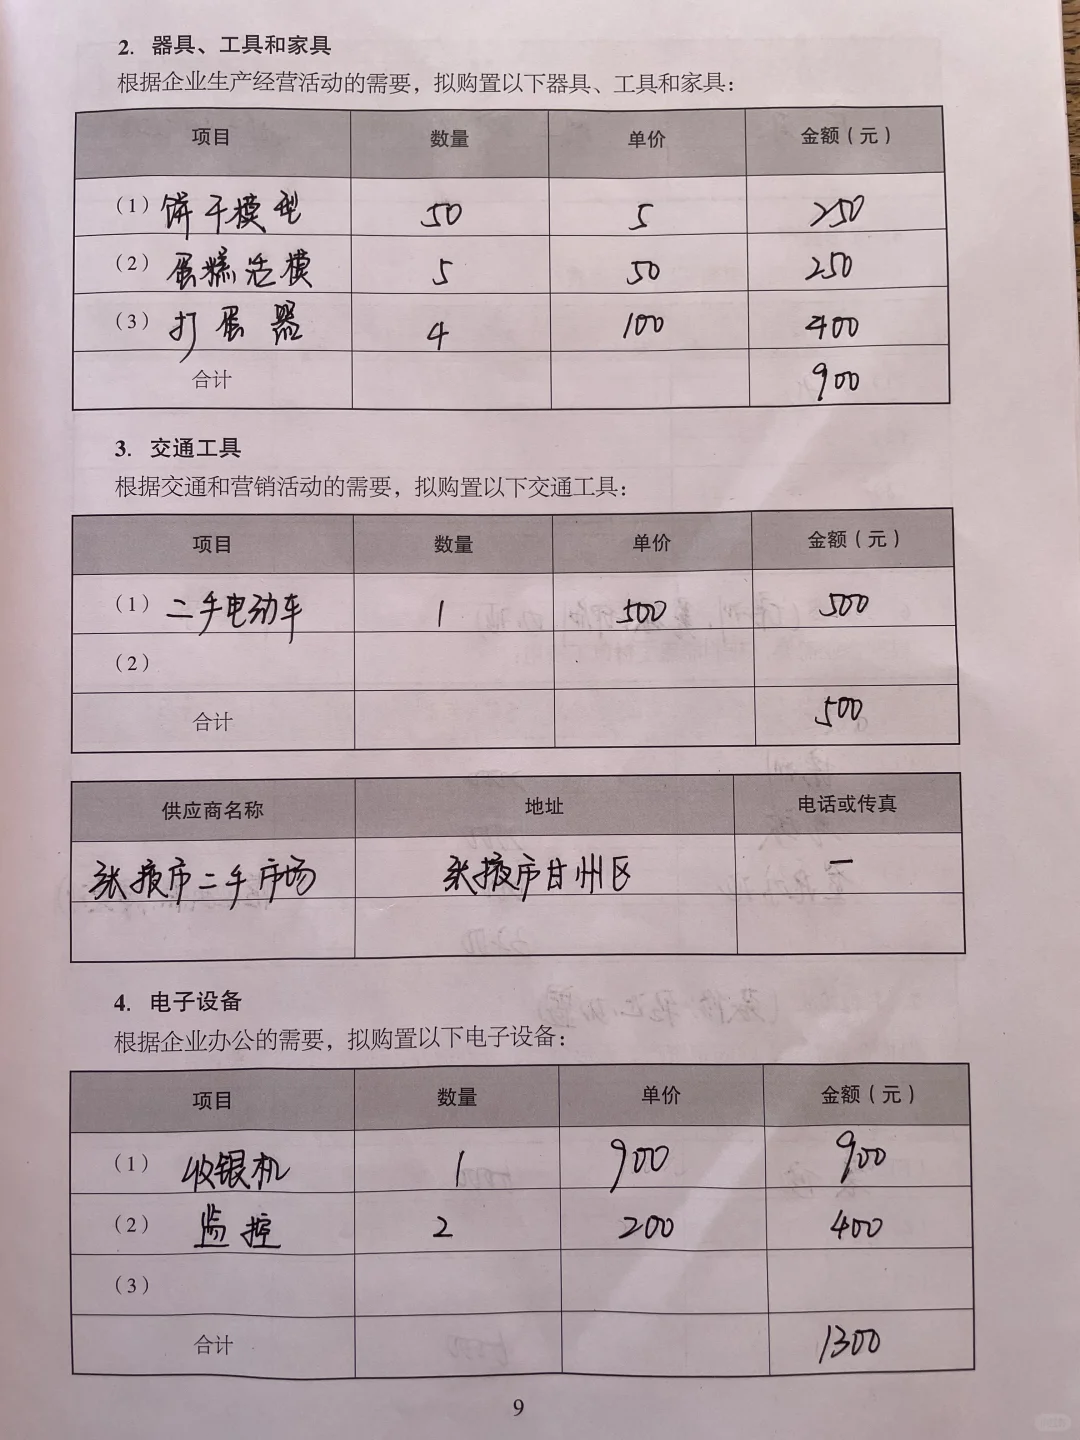 2. 器具、工具和家具
根据企业生产经营活动的需要，拟购置以下器具、工具和家具：
项目 数量 单价 金额（元）
（1）饼干模型 50 5 250
（2）蛋糕活模 5 50 250
（3）打蛋器 4 100 400
合计 900
3. 交通工具
根据交通和营销活动的需要，拟购置以下交通工具：
项目 数量 单价 金额（元）
（1）二手电动车 1 500 500
（2）
合计 500
供应商名称 地址 电话或传真
张掖市二手市场 张掖市甘州区 一
4. 电子设备
根据企业办公的需要，拟购置以下电子设备：
项目 数量 单价 金额（元）
（1）收银机 1 900 900
（2）监控 2 200 400
（3）
合计 1300
9